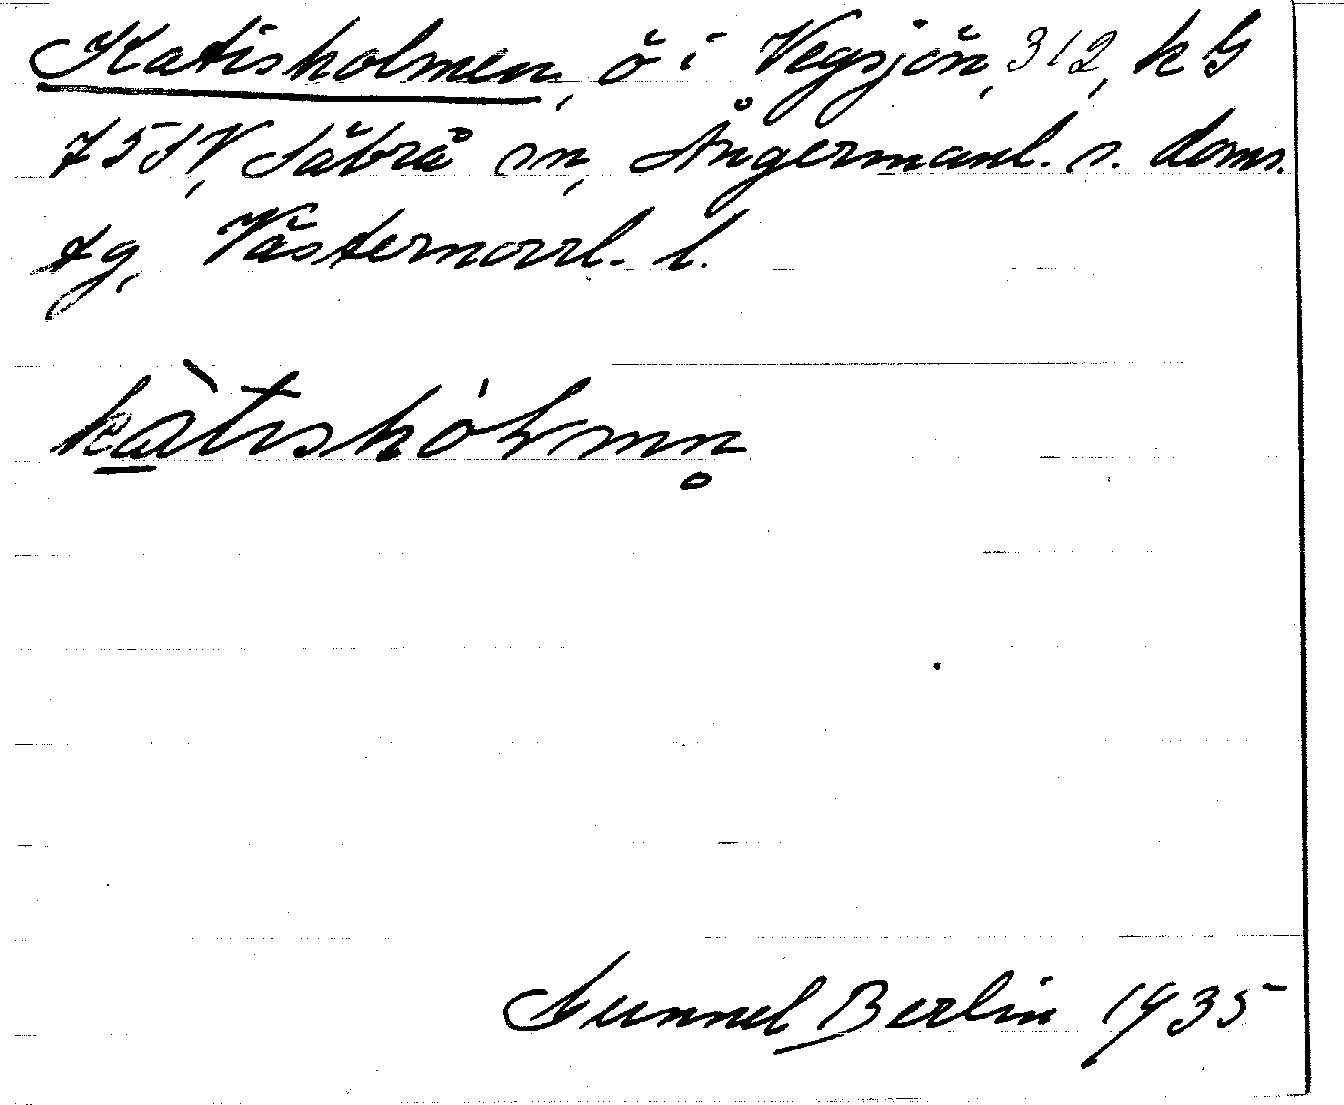 Katisholmen, ö i Vegsjön, 312, k G
75 SV, Säbrå sn, Ångermanl. s. doms.
tg, Västernorrl. l.
kàtishólmn̥
Gunnel Berlin 1935